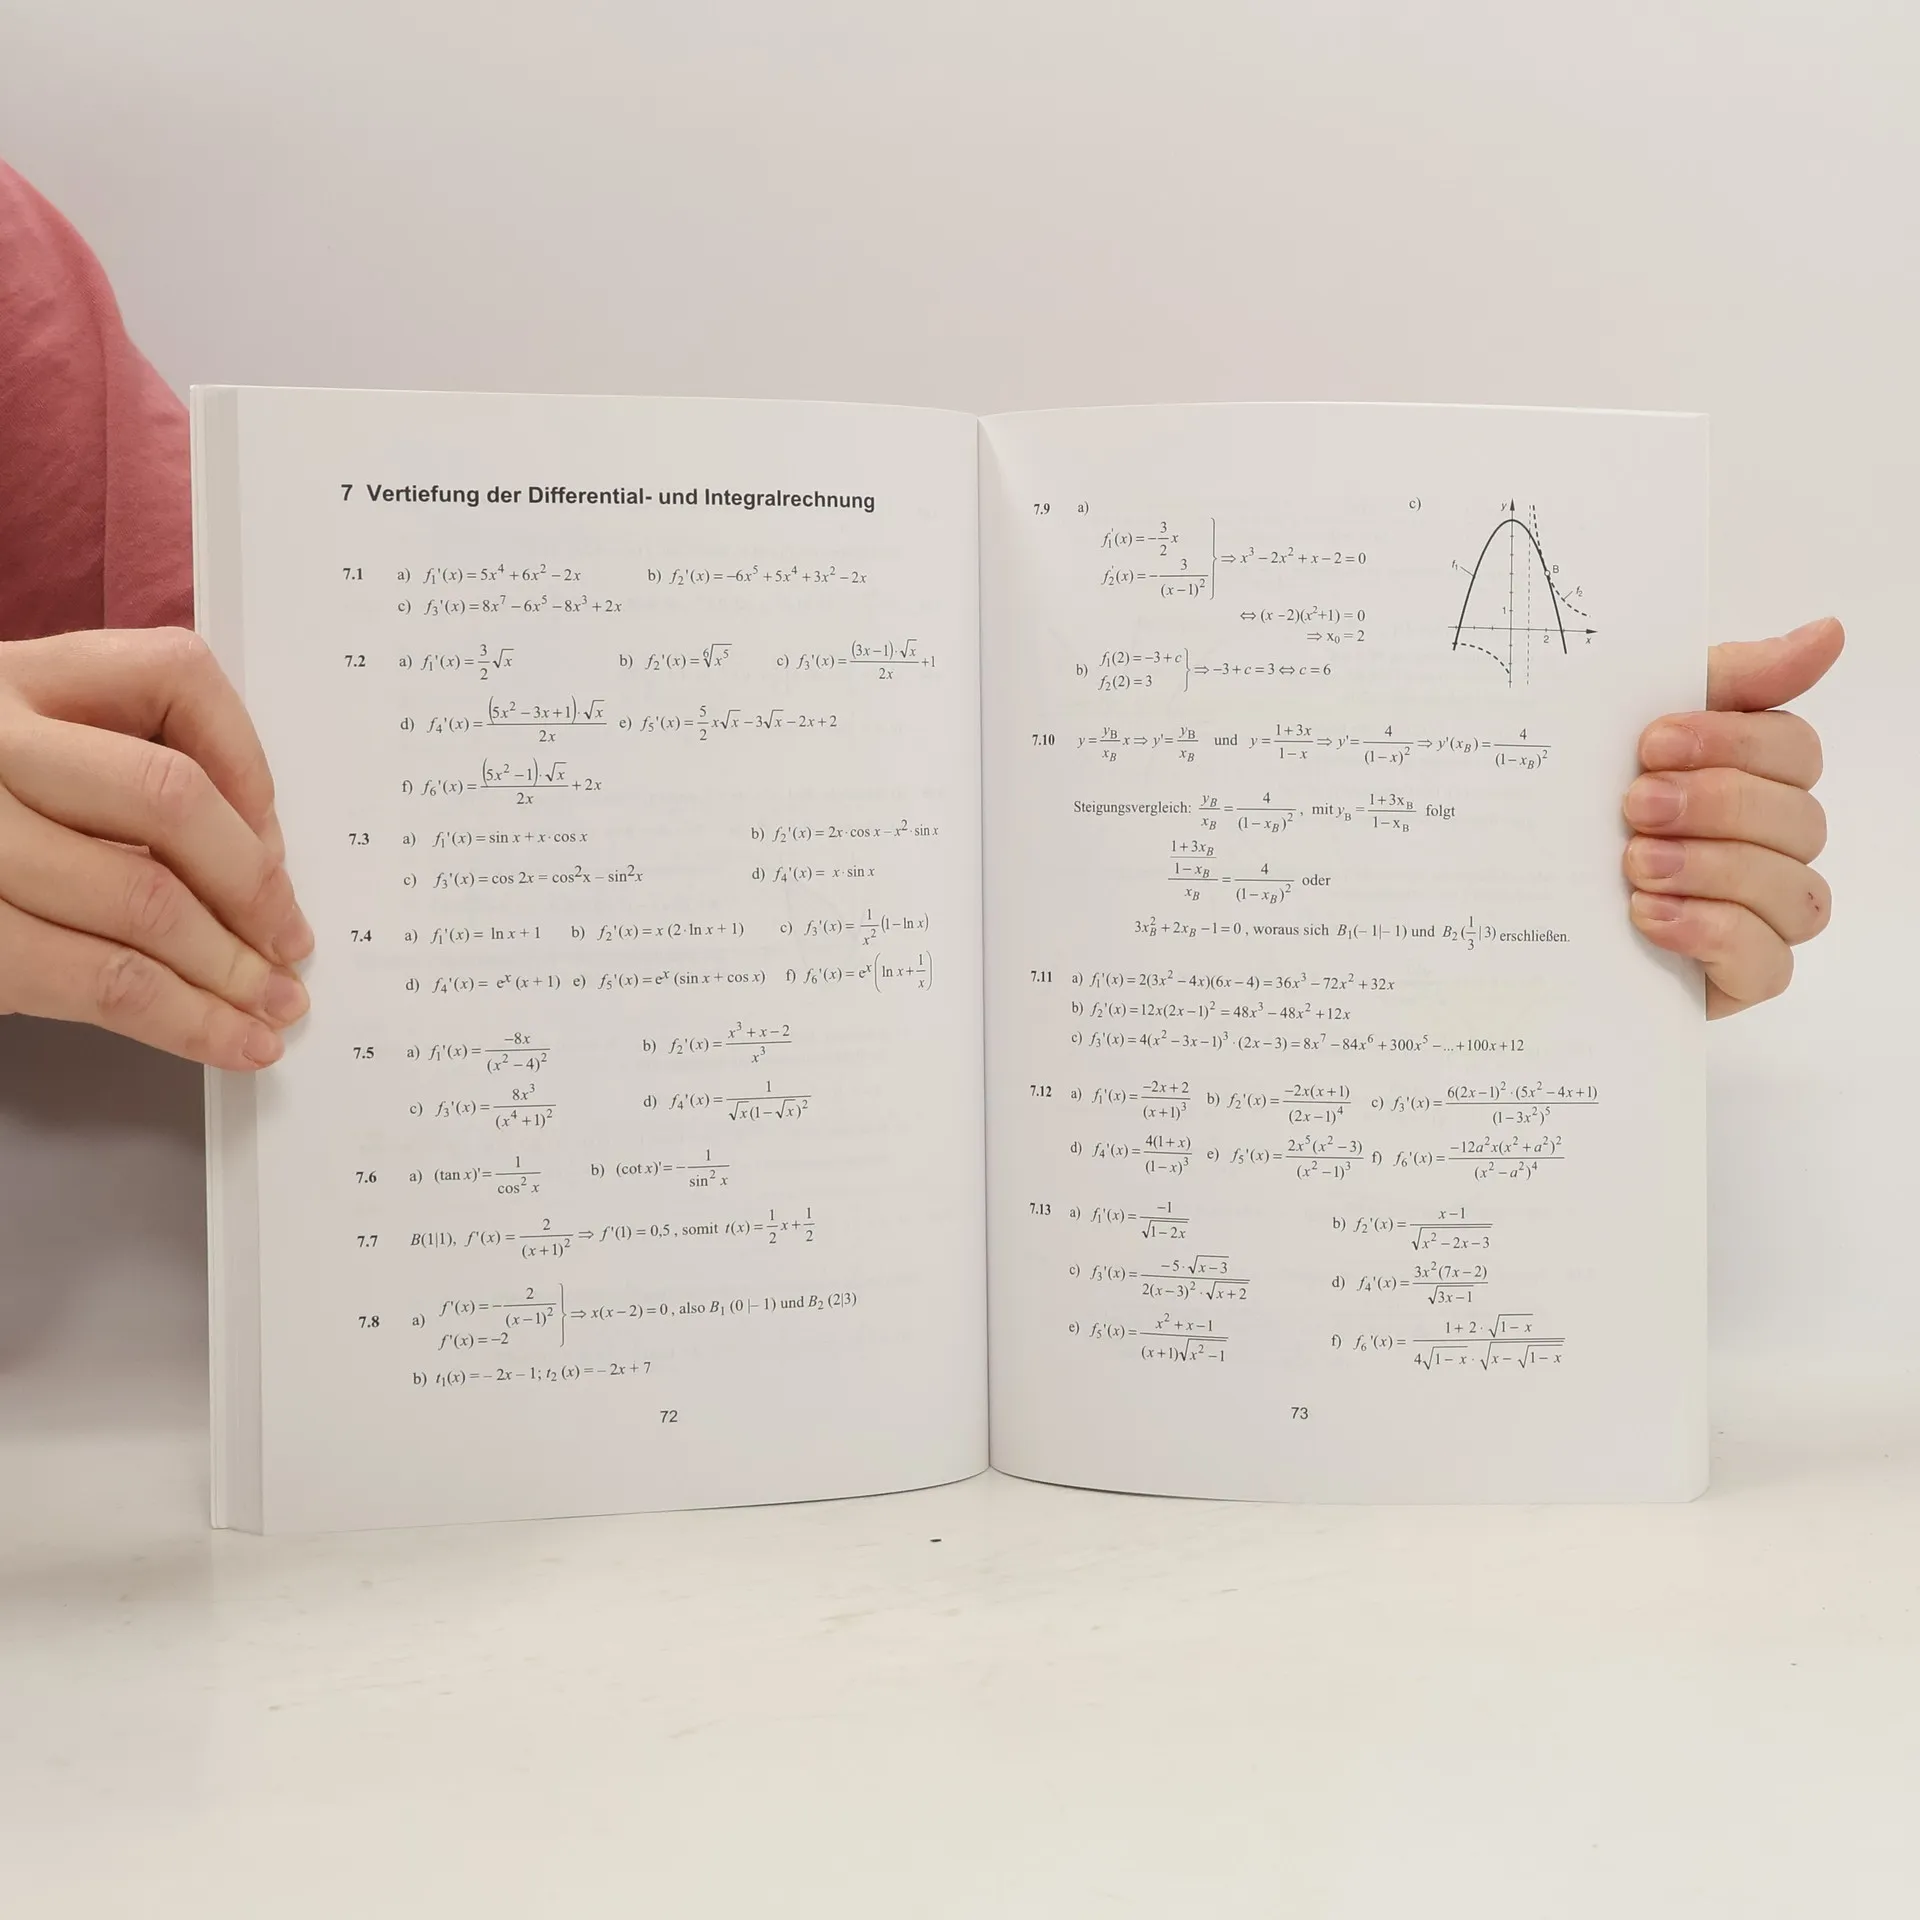 7 Vertiefung der Differential- und Integralrechnung
7.1 a) f₁'(x) = 5x⁴ + 6x² − 2x b) f₂'(x) = −6x⁵ + 5x⁴ + 3x² − 2x
c) f₃'(x) = 8x⁷ − 6x⁵ − 8x³ + 2x
7.2 a) f₁'(x) = 3/2 √x b) f₂'(x) = ⁶√x⁵ c) f₃'(x) = (3x−1)·√x / 2x + 1
d) f₄'(x) = (5x² − 3x + 1)·√x / 2x e) f₅'(x) = 5/2 x√x − 3√x − 2x + 2
f) f₆'(x) = (5x² − 1)·√x / 2x + 2x
7.3 a) f₁'(x) = sin x + x·cos x b) f₂'(x) = 2x·cos x − x²·sin x
c) f₃'(x) = cos 2x = cos²x − sin²x d) f₄'(x) = x·sin x
7.4 a) f₁'(x) = ln x + 1 b) f₂'(x) = x (2·ln x + 1) c) f₃'(x) = 1/x² (1 − ln x)
d) f₄'(x) = eˣ (x + 1) e) f₅'(x) = eˣ (sin x + cos x) f) f₆'(x) = eˣ (ln x + 1/x)
7.5 a) f₁'(x) = −8x / (x² − 4)² b) f₂'(x) = (x³ + x − 2) / x³
c) f₃'(x) = 8x³ / (x⁴ + 1)² d) f₄'(x) = 1 / √x(1 − √x)²
7.6 a) (tan x)' = 1 / cos² x b) (cot x)' = − 1 / sin² x
7.7 B(1|1), f'(x) = 2 / (x + 1)² ⇒ f'(1) = 0,5, somit t(x) = 1/2 x + 1/2
7.8 a) f'(x) = − 2 / (x − 1)²
f'(x) = −2 } ⇒ x(x − 2) = 0, also B₁ (0 |− 1) und B₂ (2|3)
b) t₁(x) = − 2x − 1; t₂ (x) = − 2x + 7
72
7.9 a)
f₁'(x) = − 3/2 x
f₂'(x) = − 3 / (x − 1)² } ⇒ x³ − 2x² + x − 2 = 0
⇔ (x − 2)(x²+1) = 0
⇒ x₀ = 2
b) f₁(2) = −3 + c
f₂(2) = 3 } ⇒ −3 + c = 3 ⇔ c = 6
c)
y
f₁
B
f₂
1
2
x
7.10 y = y_B/x_B x ⇒ y' = y_B/x_B und y = (1 + 3x)/(1 − x) ⇒ y' = 4/(1 − x)² ⇒ y'(x_B) = 4/(1 − x_B)²
Steigungsvergleich: y_B/x_B = 4/(1 − x_B)², mit y_B = (1 + 3x_B)/(1 − x_B) folgt
((1 + 3x_B)/(1 − x_B))/x_B = 4/(1 − x_B)² oder
3x_B² + 2x_B − 1 = 0, woraus sich B₁(− 1|− 1) und B₂ (1/3 | 3) erschließen.
7.11 a) f₁'(x) = 2(3x² − 4x)(6x − 4) = 36x³ − 72x² + 32x
b) f₂'(x) = 12x(2x − 1)² = 48x³ − 48x² + 12x
c) f₃'(x) = 4(x² − 3x − 1)³ · (2x − 3) = 8x⁷ − 84x⁶ + 300x⁵ − ... + 100x + 12
7.12 a) f₁'(x) = (−2x + 2)/(x + 1)³ b) f₂'(x) = −2x(x + 1)/(2x − 1)⁴ c) f₃'(x) = 6(2x − 1)² · (5x² − 4x + 1)/(1 − 3x²)⁵
d) f₄'(x) = 4(1 + x)/(1 − x)³ e) f₅'(x) = 2x⁵(x² − 3)/(x² − 1)³ f) f₆'(x) = −12a²x(x² + a²)²/(x² − a²)⁴
7.13 a) f₁'(x) = −1/√(1 − 2x) b) f₂'(x) = (x − 1)/√(x² − 2x − 3)
c) f₃'(x) = −5·√(x − 3) / 2(x − 3)²·√(x + 2) d) f₄'(x) = 3x²(7x − 2)/√(3x − 1)
e) f₅'(x) = (x² + x − 1)/(x + 1)√(x² − 1) f) f₆'(x) = (1 + 2·√(1 − x)) / 4√(1 − x)·√(x − √(1 − x))
73